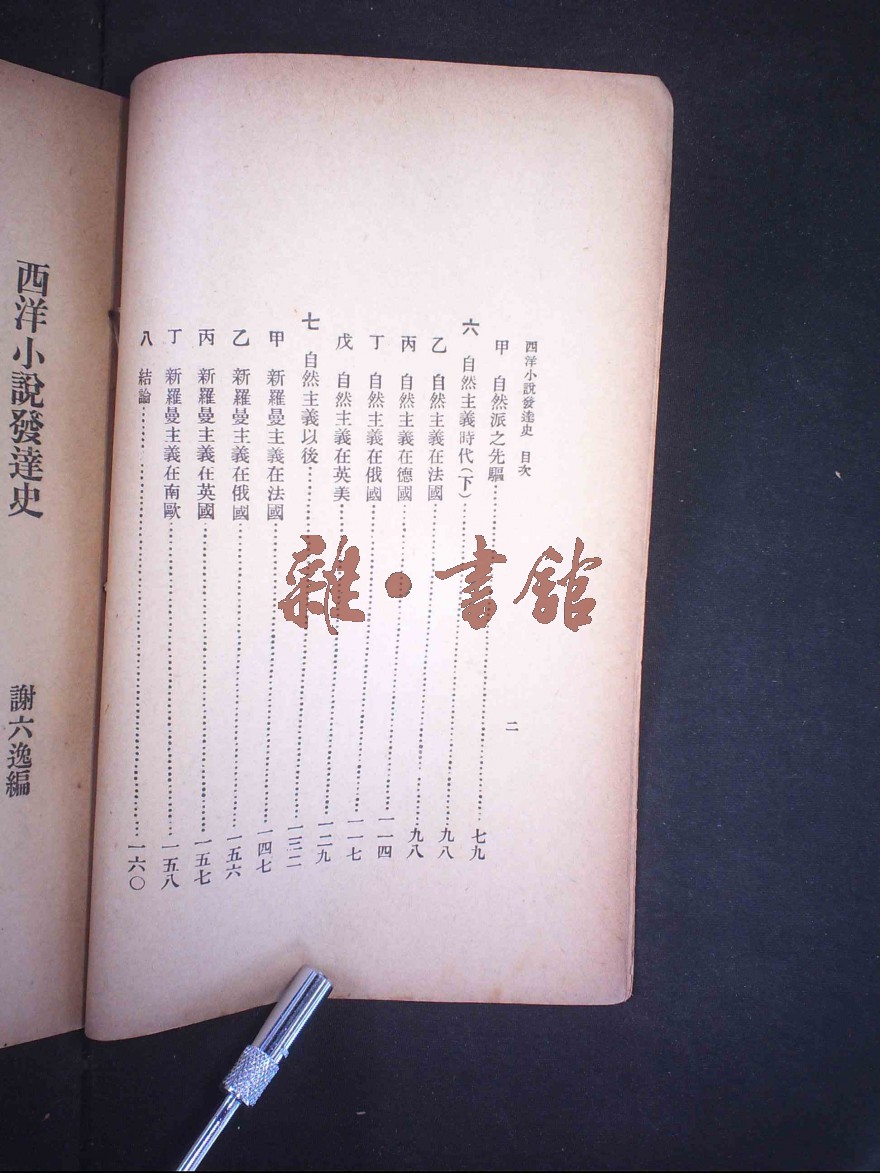 西洋小說發達史 目次 二
甲 自然派之先驅……七九
六 自然主義時代(下)……九八
乙 自然主義在法國……九八
丙 自然主義在德國……一一四
丁 自然主義在俄國……一一七
戊 自然主義在英美……一二九
七 自然主義以後……一三二
甲 新羅曼主義在法國……一四七
乙 新羅曼主義在俄國……一五六
丙 新羅曼主義在英國……一五七
丁 新羅曼主義在南歐……一五八
八 結論……一六〇
西洋小說發達史
謝六逸編
雜·書館